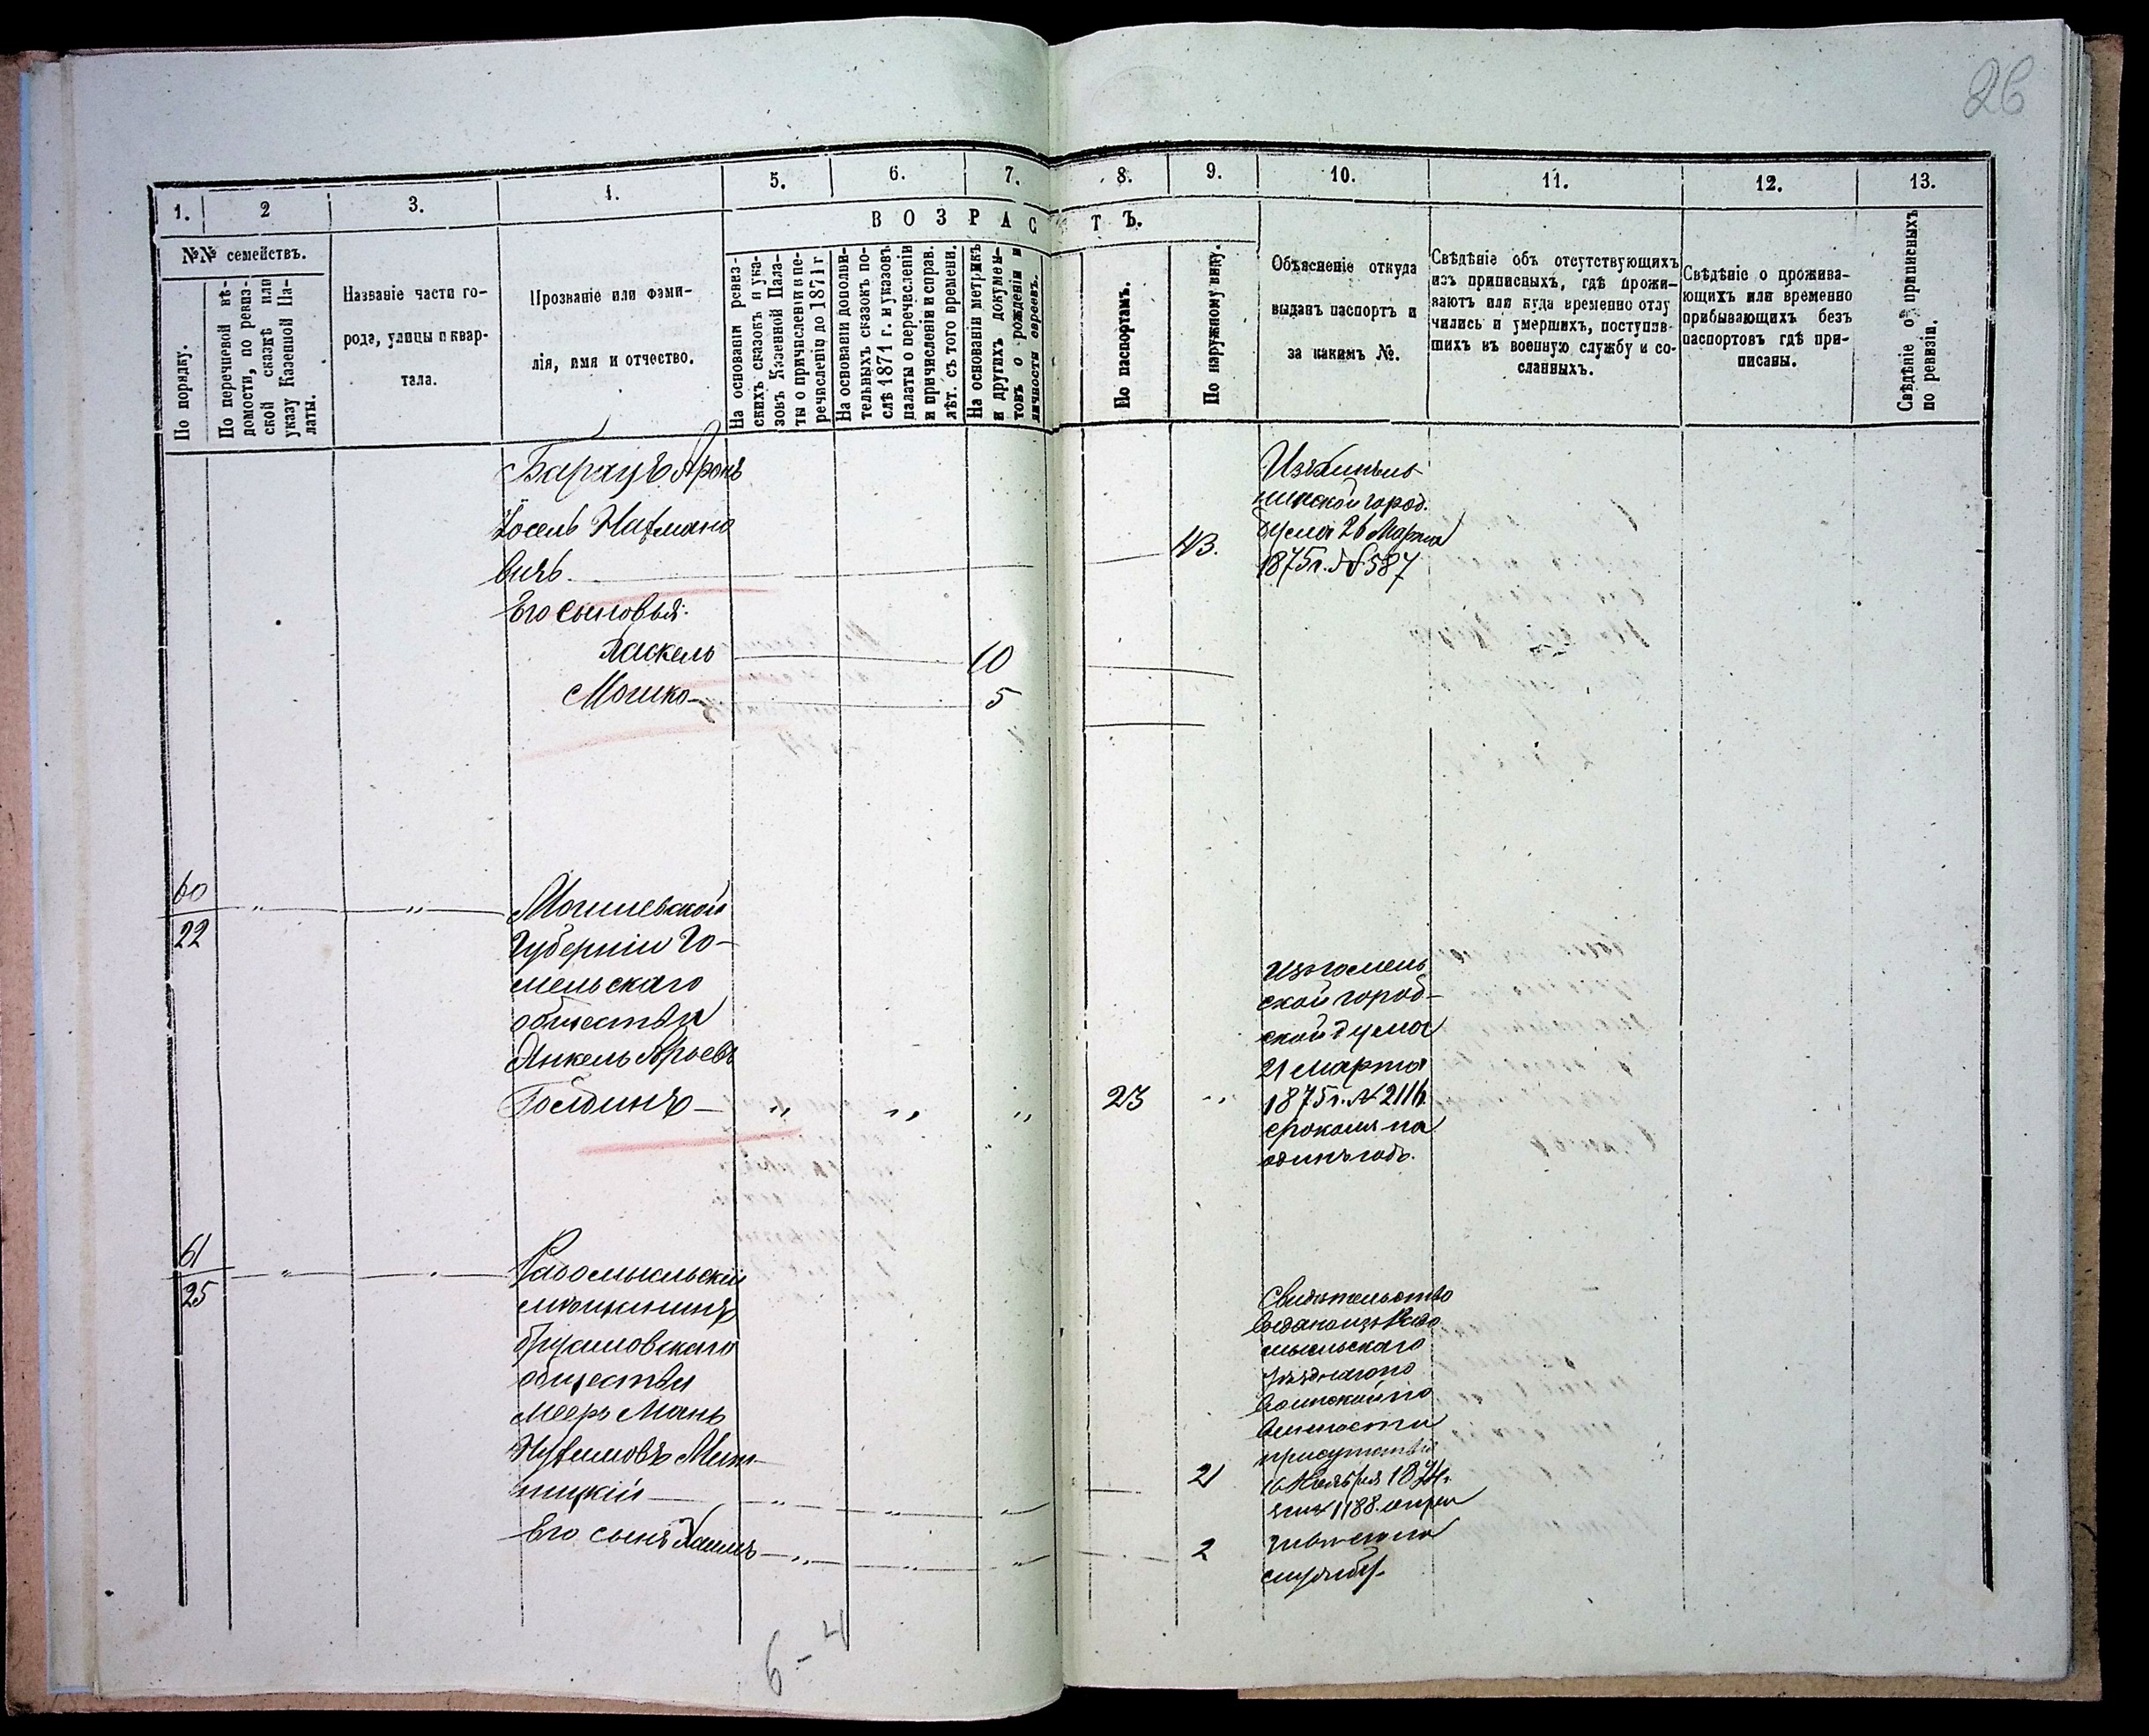 26
1. 2 3. 4. 5. 6. 7. 8. 9. 10. 11. 12. 13.
ВОЗРАСТЪ.
№№ семействъ.
По порядку.
По перечневой вѣ-
домости, по ревиз-
ской сказкѣ или
указу Казенной Па-
латы.
Названіе части го-
рода, улицы и квар-
тала.
Прозваніе или фами-
лія, имя и отчество.
На основаніи ревиз-
скихъ сказокъ и ука-
зовъ Казенной Пала-
ты о причисленіи и пе-
речисленіи до 1871 г
На основаніи дополни-
тельныхъ сказокъ по-
слѣ 1871 г. и указовъ
палаты о перечисленіи
и причисленіи и справ.
лѣт. съ того времени.
На основаніи метрикъ
и другихъ докумен-
товъ о рожденіи и
личности евреевъ.
По паспортамъ.
По наружному виду.
Объясненіе откуда
выданъ паспортъ и
за какимъ №.
Свѣдѣніе объ отсутствующихъ
изъ приписныхъ, гдѣ прожи-
ваютъ или куда временно отлу
чились и умершихъ, поступив-
шихъ въ военную службу и со-
сланныхъ.
Свѣдѣніе о прожива-
ющихъ или временно
прибывающихъ безъ
паспортовъ гдѣ при-
писаны.
Свѣдѣніе о приписныхъ
по ревизіи.
Аронъ
Іосель Нахмано
вичъ
43.
Его сыновья:
Хаскель 10
Мошко 5
ской город.
Думы 26 Марта
1875 г. № 587
60
22
Могилевской
Губерніи Го-
мельскаго
общества
Янкель Арьевъ
Голдинъ 23
Изъ гомель
ской город-
ской думы
21 марта
1875 г. № 2116
срокомъ на
одинъ годъ.
61
25
Радомысльскій
мѣщанинъ
брусиловскаго
общества
Мееръ Мань
21
Его сынъ Хаимъ 2
Свидѣтельство
выдано изъ Радо
мысльскаго
уѣзднаго по
воинской по
винности
присутствія
16 Ноября 1874 г.
за № 1188.
службу.
6 - 4